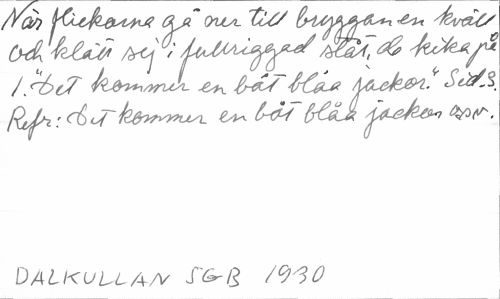 När flickorna gå ner till bryggan en kväll
och klätt sej i fullriggad ståt, de kika på
1. "Det kommer en båt blåa jackor." Sid. 3.
Refr: Det kommer en båt blåa jackor osv.
DALKULLAN SGB 1930